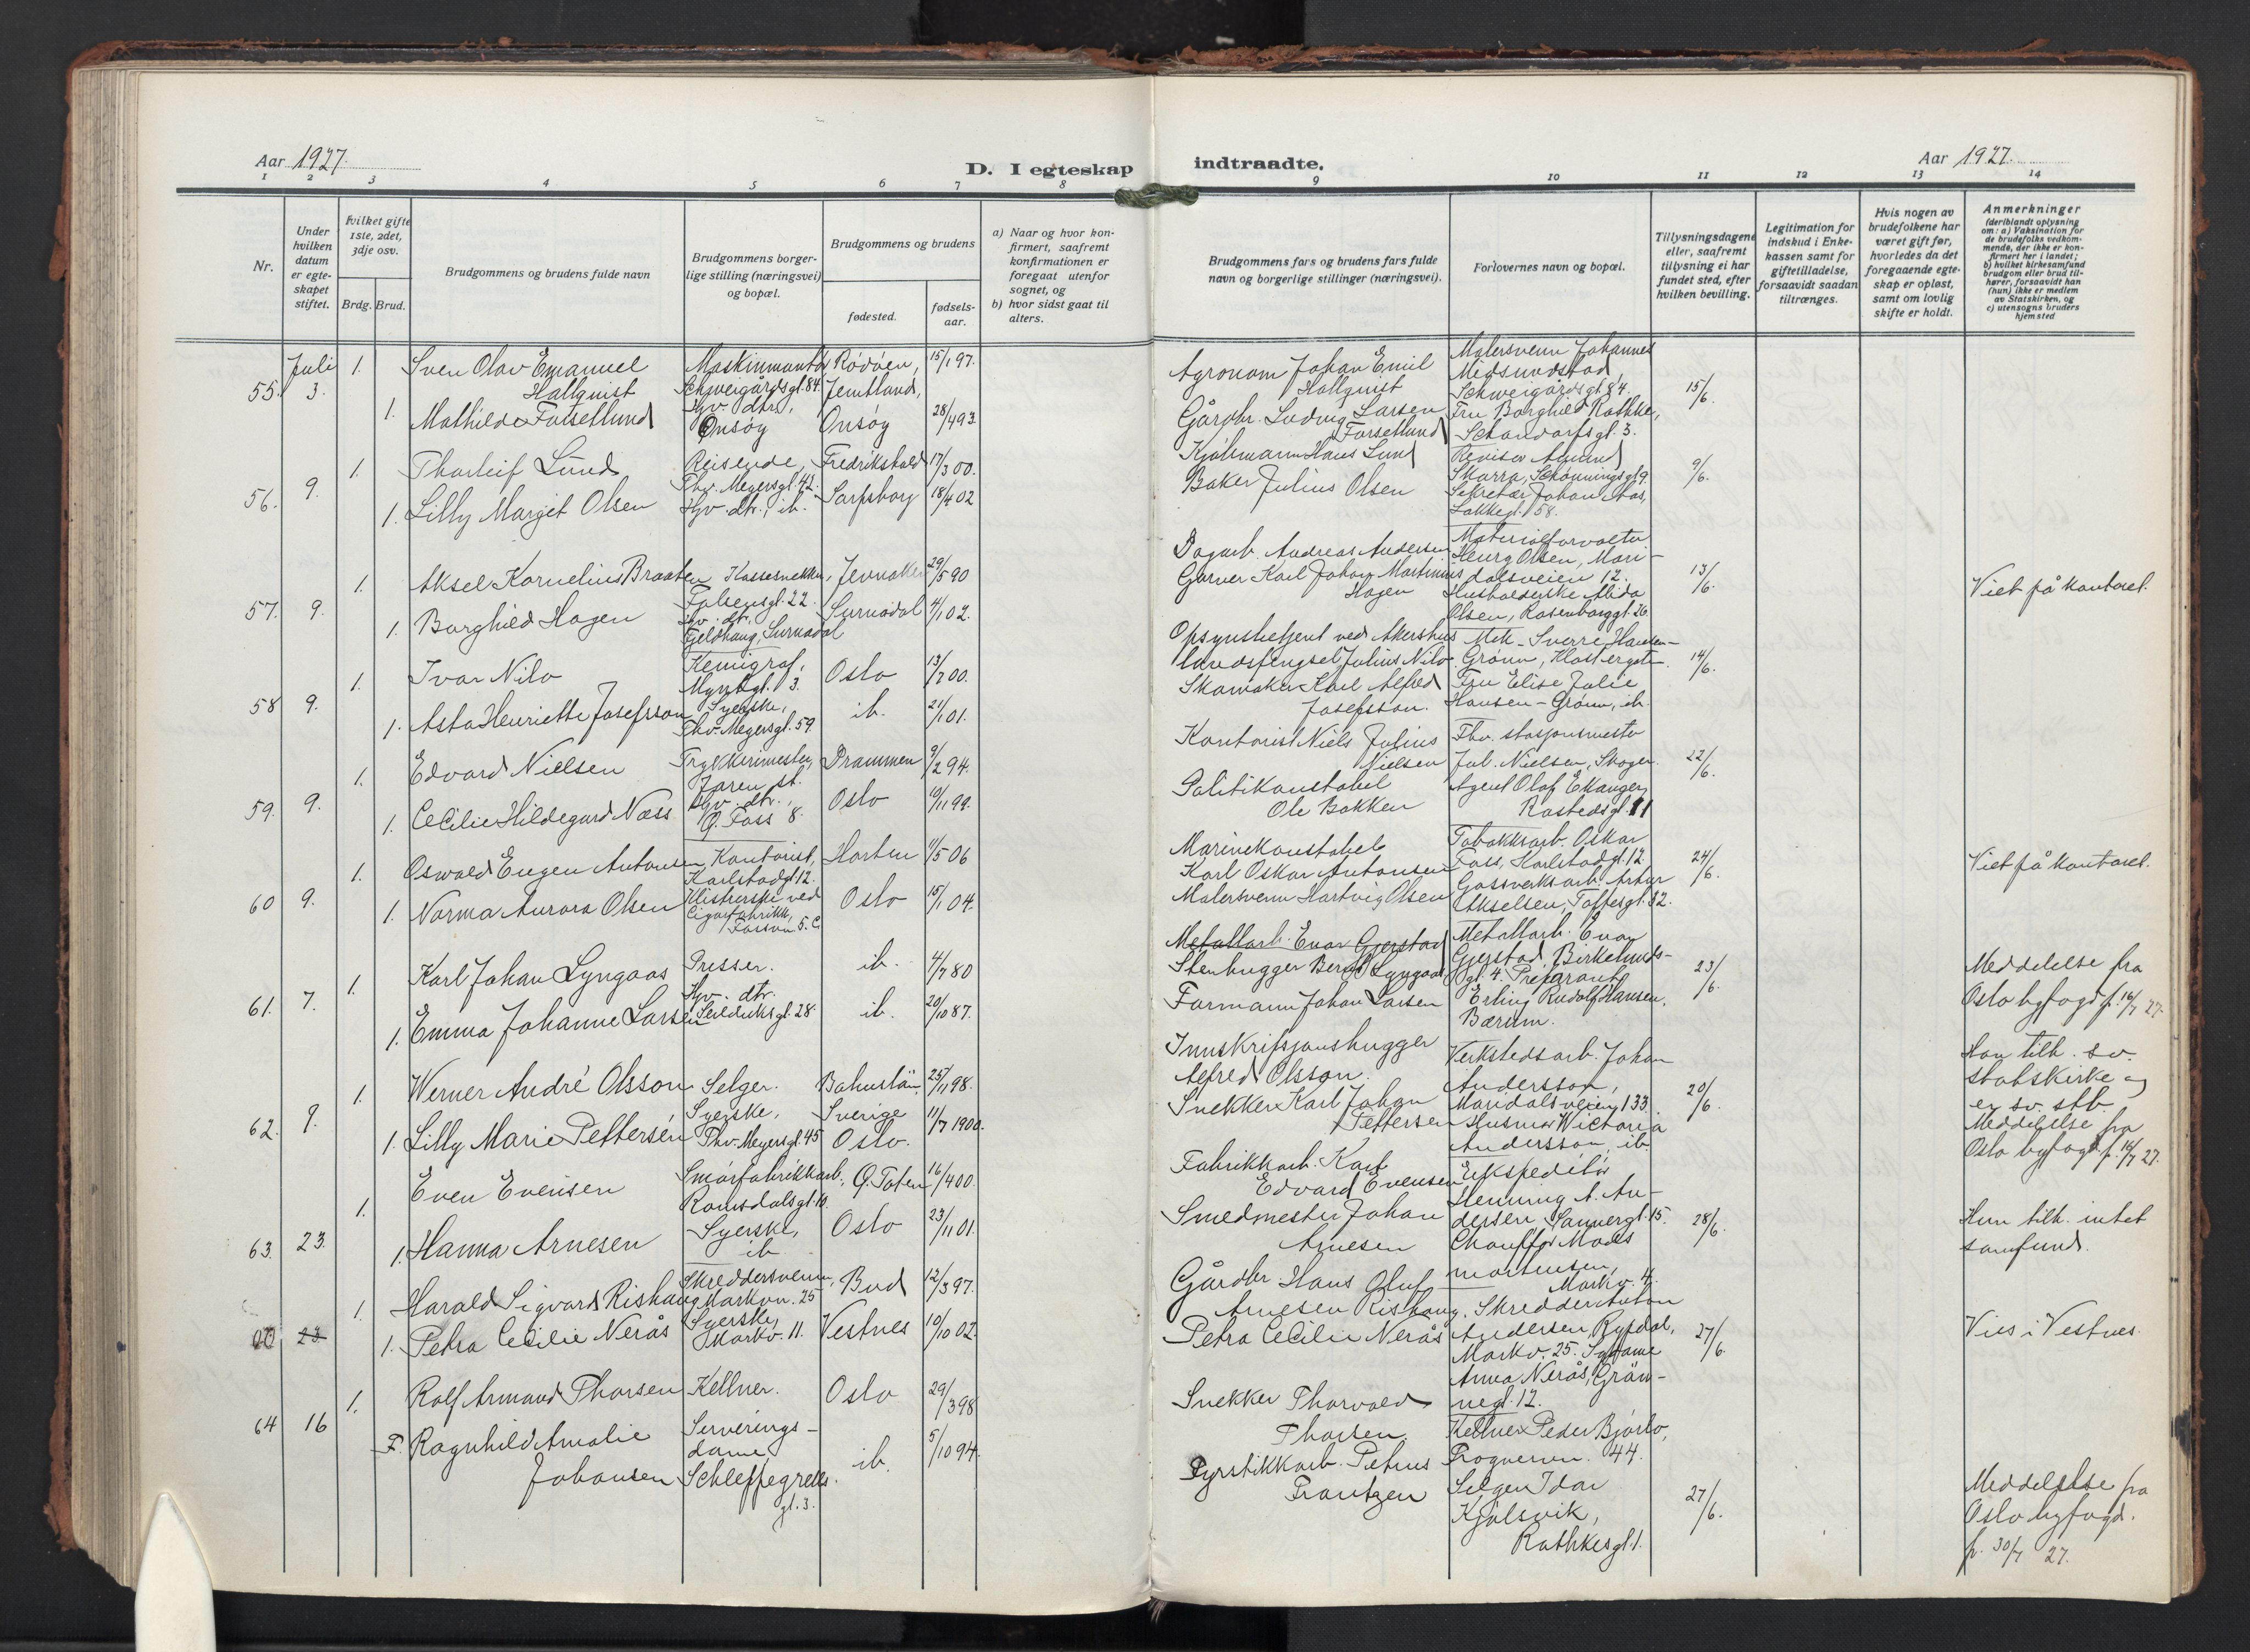 Aar 1927.
D. I egteskap
1 2 3 4 5 6 7 8
Nr.
Under hvilken datum er egteskapet stiftet.
Hvilket gifte 1ste, 2det, 3dje osv.
Brdg. Brud.
Brudgommens og brudens fulde navn
Brudgommens borgerlige stilling (næringsvei) og bopæl.
Brudgommens og brudens
fødested.
fødselsaar.
a) Naar og hvor konfirmert, saafremt konfirmationen er foregaat utenfor sognet, og
b) hvor sidst gaat til alters.
Juli
55. 3. 1. Sven Olav Emanuel Hallquist Maskinmontør, Schweigårdsgt. 84. Rödöen, Jemtland, 15/1 97.
1. Mathilde Forsetlund Hjv. dtr., Onsøy Onsøy 28/4 93.
56. 9. 1. Thorleif Lund Reisende, Thv. Meyersgt. 42. Fredrikshald 17/3 00.
1. Lilly Margit Olsen Hjv. dtr., ib. Sarpsborg 18/4 02
57. 9. 1. Aksel Kornelius Braaten Kassesnekker, Falsensgt. 22. Jevnaker 29/5 90
1. Borghild Hagen Hjv. dtr. Fjeldhaug, Surnadal Surnadal 4/1 02.
58 9. 1. Ivar Nilo Kemigraf, 3. Oslo 13/7 00.
1. Asta Henriette Josefsson Syerske, Thv. Meyersgt. 59. ib. 21/1 01.
59. 9. 1. Edvard Nielsen Trykkerimester, Jaren st. Drammen 9/2 94.
1. Cecilie Hildegard Næss Hjv. dtr., Q. Foss 8. Oslo 10/11 99.
60 9. 1. Oswald Eugen Antonsen, Kontorist, Karlstadgt. 12. Horten 11/5 06
1. Norma Aurora Olsen Klistrerske ved Cigarfabrikk, Fossvn. 5. C. Oslo 15/1 04.
61. 7. 1. Karl Johan Lyngaas Presser. ib. 4/7 80
1. Emma Johanne Larsen Hjv. dtr. Seilduksgt. 28. ib. 20/10 87.
62. 9. 1. Werner André Olsson Selger. Bohuslän, Sverige 25/11 98.
1. Lilly Marie Pettersen Syerske, Thv. Meyersgt. 45 Oslo. 11/7 1900.
63. 23. 1. Even Evensen Smørfabrikkarb., Romsdalsgt. 10. Ø. Toten 16/4 00.
1. Hanna Arnesen Syerske, ib. Oslo 23/11 01.
23. 1. Harald Sigvard Rishaug Skreddersvenn, Markvn. 25 Bud 12/3 97.
1. Petra Cecilie Nerås Syerske, Markv. 11. Vestnes 10/10 02.
64 16 1. Rolf Armand Thorsen Kellner. Oslo 29/3 98
F. Ragnhild Amalie Johansen Serveringsdame Schleppegrellsgt. 3. ib. 5/10 94.
indtraadte.
Aar 1927.
9 10 11 12 13 14
Brudgommens fars og brudens fars fulde navn og borgerlige stillinger (næringsvei).
Forlovernes navn og bopæl.
Tillysningsdagene eller, saafremt tillysning ei har fundet sted, efter hvilken bevilling.
Legitimation for indskud i Enkekassen samt for giftetilladelse, forsaavidt saadan tiltrænges.
Hvis nogen av brudefolkene har været gift før, hvorledes da det foregaaende egteskap er opløst, samt om lovlig skifte er holdt.
Anmerkninger
(deriblandt oplysning om: a) Vaksination for de brudefolks vedkommende, der ikke er konfirmert her i landet; b) hvilket kirkesamfund brudgom eller brud tilhører, forsaavidt han (hun) ikke er medlem av Statskirken, og c) utensogns bruders hjemsted
Agronom Johan Emil Hallquist
Gårdbr. Ludvig Larsen Forsetlund
Malersvenn Johannes Midsundstad, Schweigårdsgt. 84.
Fru Borghild Rathke, Schandorfsgt. 3.
15/6.
Kjølmann Hans Lund
Baker Julius Olsen
Revisor Amund Skarra, Schønningsgt. 9.
Sekretær Johan Aas, Lakkegt. 58.
9/6.
Dagarb. Andreas Andersen
Garver Karl Johan Martinius Hagen
Materialforvalter Henry Olsen, Maridalsveien 12.
Husholderske Alida Olsen, Rosenborggt. 26.
13/6.
Viet på kontoret.
Opsynsbetjent ved Akershus landsfengsel Julius Nilo.
Skomaker Karl Alfred Josefsson.
Mek. Sverre Hansen-Grønn, Klostergaten.
Fru Elise Julie Hansen-Grønn, ib.
14/6.
Kontorist Niels Julius Nielsen
Politikonstabel Ole Bakken
Fhv. stasjonsmester Jul. Nielsen, Skoger.
Agent Olaf Ekanger, Rostedsgt. 11
22/6.
Marinekonstabel Karl Oskar Antonsen
Malersvenn Hartvig Olsen
Tobakksarb. Oskar Foss, Karlstadgt. 12.
Gassverksarb. Artur Akselsen, Toftesgt. 32.
24/6.
Viet på kontoret.
Metallarb. Evar Gjerstad
Stenhugger Bernt Lyngaas
Formann Johan Larsen
Metallarb. Evar Gjerstad, Birkelundsgt. 4.
Preparant Erling Rudolf Hansen, Bærum.
23/6.
Meddelelse fra Oslo byfogd p. 16/7 27.
Innskripsjonshugger Alfred Olsson.
Snekker Karl Johan Pettersen
Verkstedsarb. Johan Andersson, Maridalsveien 133.
Husmor Victoria Andersson, ib.
20/6.
Han tilh. sv. statskirke og er sv. stb.
Meddelelse fra Oslo byfogd p. 16/7 27.
Fabrikkarb. Karl Edvard Evensen
Smedmester Johan Arnesen
Ekspeditør Henning A. Andersen, Sannergt. 15.
Chauffør Mads Mortensen, Markv. 4.
28/6.
Hun tilh. intet samfund.
Gårdbr Hans Oluf Arnesen Rishaug.
Petra Cecilie Nerås
Skredder Anton Andersen Rypdal, Markv. 25.
Sydame Anna Nerås, Grünnegt. 12.
27/6.
Vies i Vestnes.
Snekker Thorvald Thorsen.
Fyrstikkarb. Petrus Frantzen
Kellner Peder Bjørlo, Frognervn. 44.
Selger Idar Kjølsvik, Rathkesgt. 1.
27/6.
Meddelelse fra Oslo byfogd. p. 30/7 27.